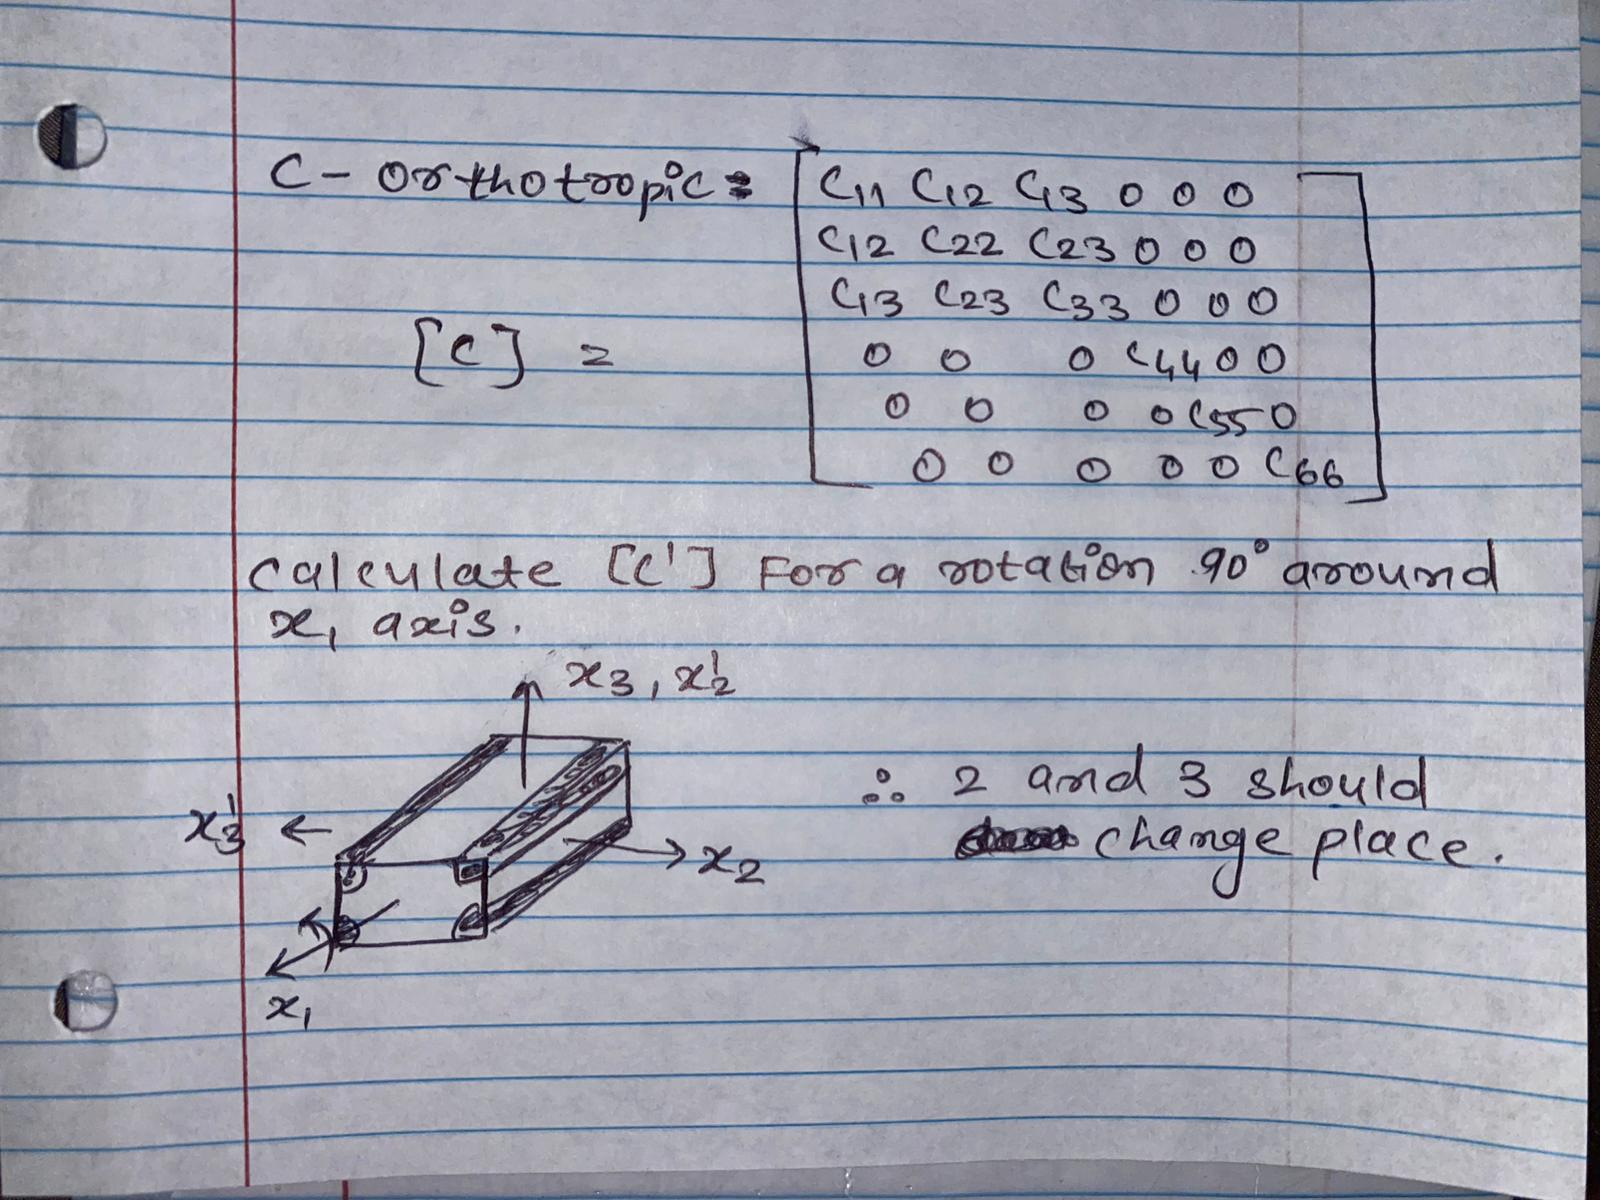 C - Orthotropic = [C11 C12 C13 0 0 0
C12 C22 C23 0 0 0
C13 C23 C33 0 0 0
[C] = 0 0 0 C44 0 0
0 0 0 0 C55 0
0 0 0 0 0 C66]
Calculate [C'] For a rotation 90° around
x1 axis.
x3, x'2
∴ 2 and 3 should
x'3
change place.
x2
x1